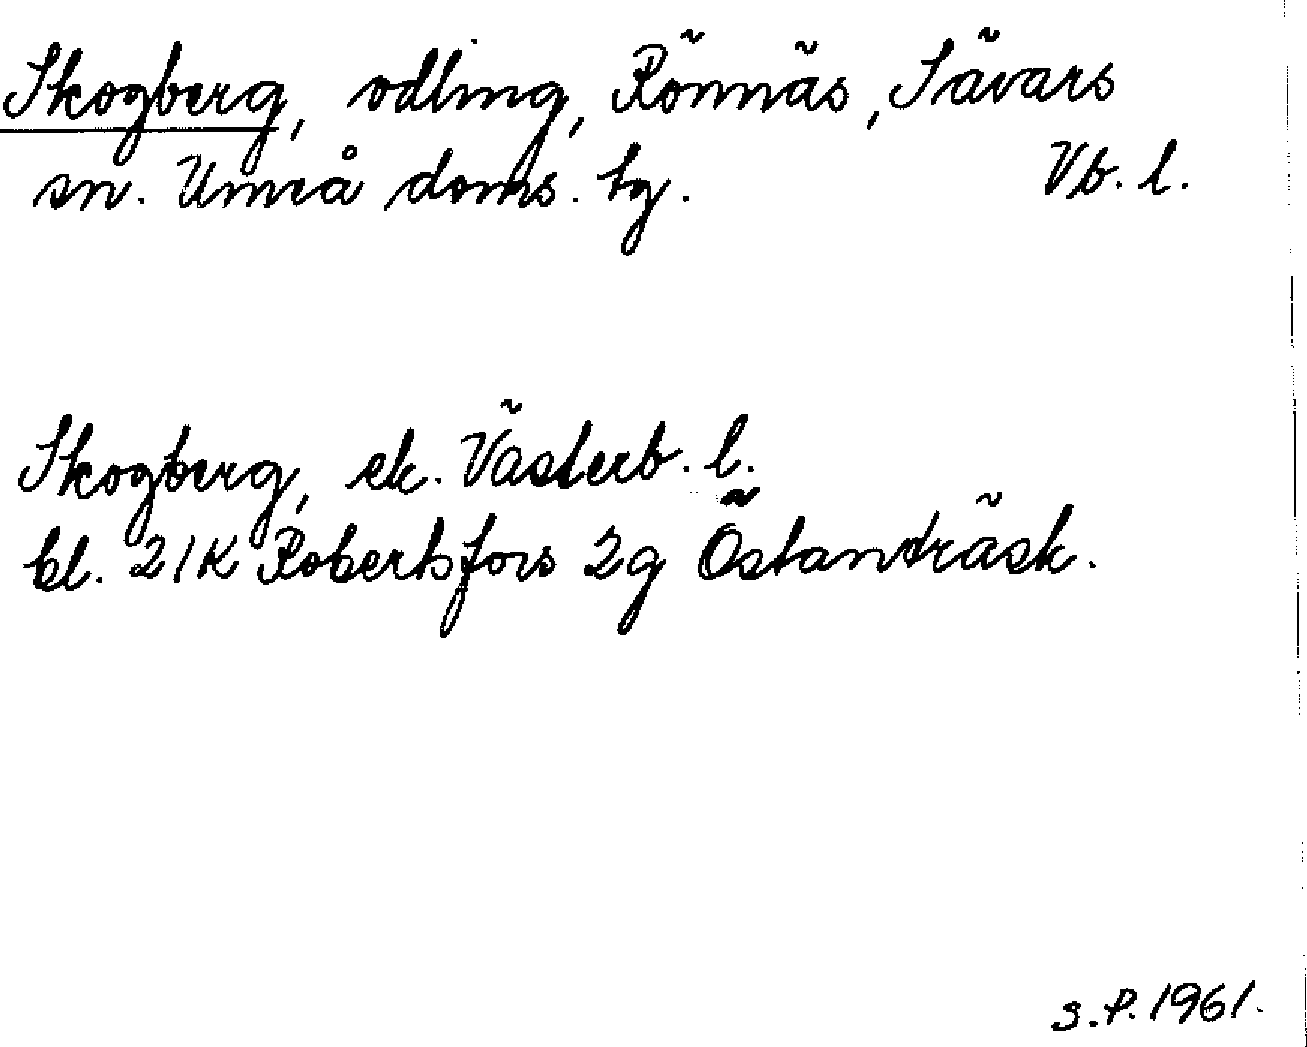 Skogberg, odling, Rönnäs, Sävars
sn. Umeå doms. tg. Vb. l.
Skogberg, ek. Västerb. l.
bl. 21K Robertsfors 2g Östanträsk.
S.P. 1961.